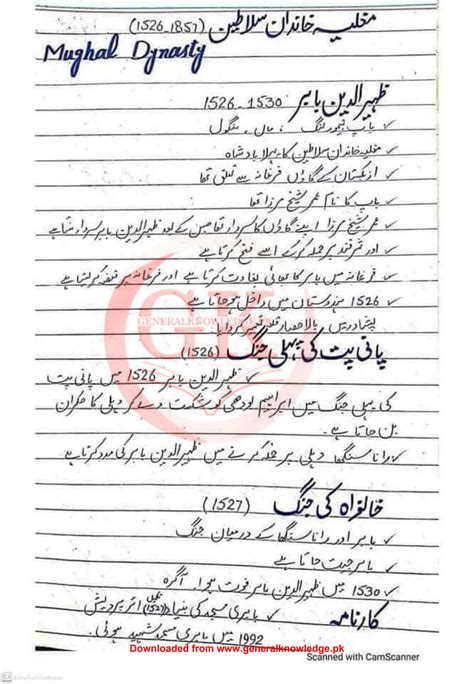 مغلیہ خاندان سلاطین (1526-1857)
Mughal Dynasty
ظہیرالدین بابر 1526-1530
✓ باپ تیمور لنگ ، ماں - منگول
✓ مغلیہ خاندان سلاطین کا پہلا بادشاہ
✓ ازبکستان کے گاؤں فرغانہ سے تعلق تھا
✓ باپ کا نام عمر شیخ مرزا تھا
✓ عمر شیخ مرزا اپنے گاؤں کا سردار تھا جس کے بعد ظہیرالدین بابر سردار بنتا ہے
✓ اور ثمر قند پر حملہ کرکے اسے فتح کرتا ہے
✓ فرغانہ میں بابر کا بھائی بغاوت کرتا ہے اور فرغانہ پر قبضہ کر لیتا ہے
✓ 1526 ہندوستان میں داخل ہو جاتا ہے
پشاور میں بالاحصار قلعہ تعمیر کروایا
GENERALKNOWLEDGE.PK
GK
پانی پت کی پہلی جنگ (1526)
✓ ظہیرالدین بابر 1526 میں پانی پت
کی پہلی جنگ میں ابراہیم لودھی کو شکست دے کر دہلی کا حکمران
بن جاتا ہے.
✓ رانا سنگھا دہلی پر حملہ کرنے میں ظہیرالدین بابر کی مدد کرتا ہے
خانواہ کی جنگ (1527)
✓ بابر اور رانا سنگھا کے درمیان جنگ
✓ بابر جیت جاتا ہے
✓ 1530 میں ظہیرالدین بابر فوت ہوا. آگرہ
کارنامہ ✓ بابری مسجد کی بنیاد (1527) اتر پردیش
1992 میں بابری مسجد شہید ہوئی.
Downloaded from www.generalknowledge.pk
Scanned with CamScanner